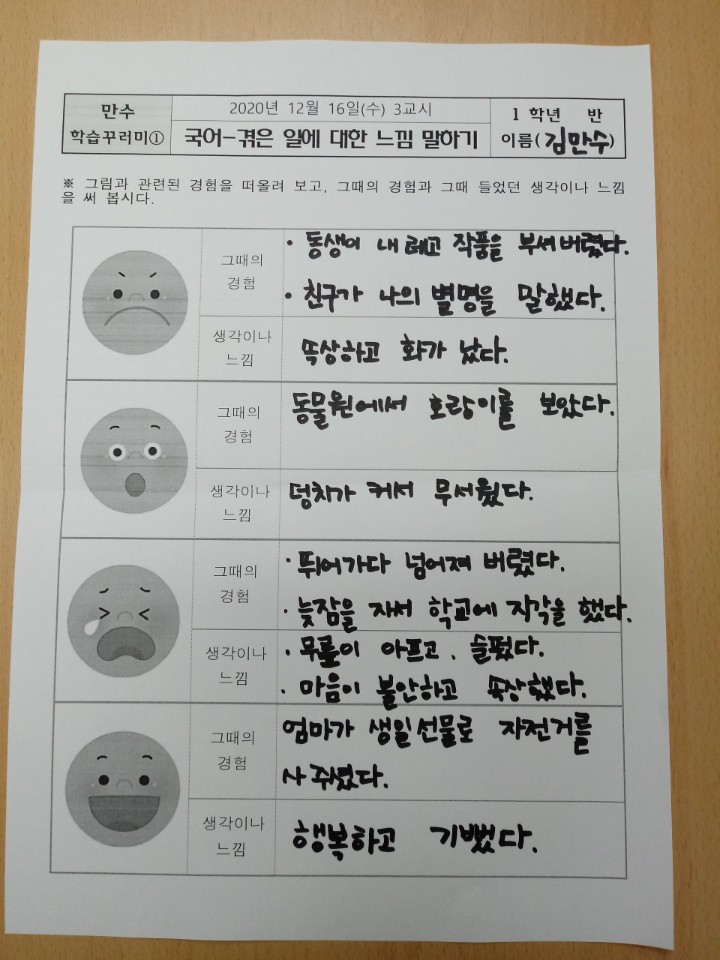 만수
학습꾸러미①
2020년 12월 16일(수) 3교시
국어-겪은 일에 대한 느낌 말하기
1 학년 반
이름(김만수)
※ 그림과 관련된 경험을 떠올려 보고, 그때의 경험과 그때 들었던 생각이나 느낌
을 써 봅시다.
그때의
경험
· 동생이 내 레고 작품을 부셔버렸다.
· 친구가 나의 별명을 말했다.
생각이나
느낌
속상하고 화가 났다.
그때의
경험
동물원에서 호랑이를 보았다.
생각이나
느낌
덩치가 커서 무서웠다.
그때의
경험
· 뛰어가다 넘어져 버렸다.
· 늦잠을 자서 학교에 지각을 했다.
생각이나
느낌
· 무릎이 아프고, 슬펐다.
· 마음이 불안하고 속상했다.
그때의
경험
엄마가 생일선물로 자전거를
사 주셨다.
생각이나
느낌
행복하고 기뻤다.